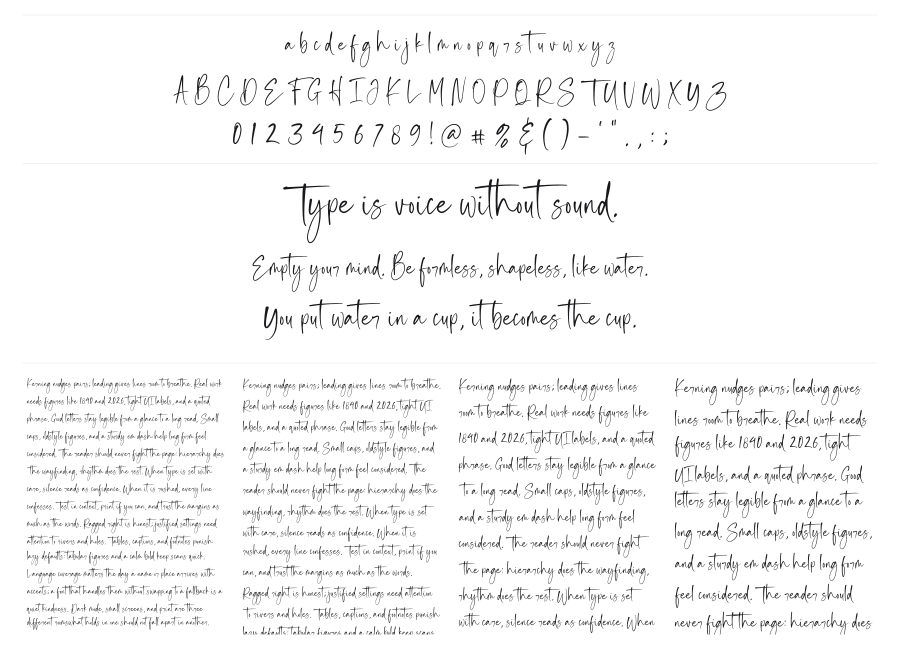 a b c d e f g h i j k l m n o p q r s t u v w x y z
A B C D E F G H I J K L M N O P Q R S T U V W X Y Z
0 1 2 3 4 5 6 7 8 9 ! @ # % & ( ) - ' " . , : ;
Type is voice without sound.
Empty your mind. Be formless, shapeless, like water.
You put water in a cup, it becomes the cup.
Kerning nudges pairs; leading gives lines room to breathe. Real work
needs figures like 1890 and 2026, tight UI labels, and a quoted
phrase. Good letters stay legible from a glance to a long read. Small
caps, oldstyle figures, and a sturdy em dash help long form feel
considered. The reader should never fight the page: hierarchy does
the wayfinding, rhythm does the rest. When type is set with
care, silence reads as confidence. When it is rushed, every line
confesses. Test in context, print if you can, and trust the margins as
much as the words. Ragged right is honest; justified settings need
attention to rivers and holes. Tables, captions, and footnotes punish
lazy defaults: tabular figures and a calm bold keep scans quick.
Language coverage matters the day a name or place arrives with
accents; a font that handles them without swapping to a fallback is a
quiet kindness. Dark mode, small screens, and print are three
different rooms: what holds in one should not fall apart in another.
Kerning nudges pairs; leading gives lines room to breathe.
Real work needs figures like 1890 and 2026, tight UI
labels, and a quoted phrase. Good letters stay legible from
a glance to a long read. Small caps, oldstyle figures, and
a sturdy em dash help long form feel considered. The
reader should never fight the page: hierarchy does the
wayfinding, rhythm does the rest. When type is set
with care, silence reads as confidence. When it is
rushed, every line confesses. Test in context, print if you
can, and trust the margins as much as the words.
Ragged right is honest; justified settings need attention
to rivers and holes. Tables, captions, and footnotes punish
lazy defaults: tabular figures and a calm bold keep scans
Kerning nudges pairs; leading gives lines
room to breathe. Real work needs figures like
1890 and 2026, tight UI labels, and a quoted
phrase. Good letters stay legible from a glance
to a long read. Small caps, oldstyle figures,
and a sturdy em dash help long form feel
considered. The reader should never fight
the page: hierarchy does the wayfinding,
rhythm does the rest. When type is set
with care, silence reads as confidence. When
Kerning nudges pairs; leading gives
lines room to breathe. Real work needs
figures like 1890 and 2026, tight
UI labels, and a quoted phrase. Good
letters stay legible from a glance to a
long read. Small caps, oldstyle figures,
and a sturdy em dash help long form
feel considered. The reader should
never fight the page: hierarchy does